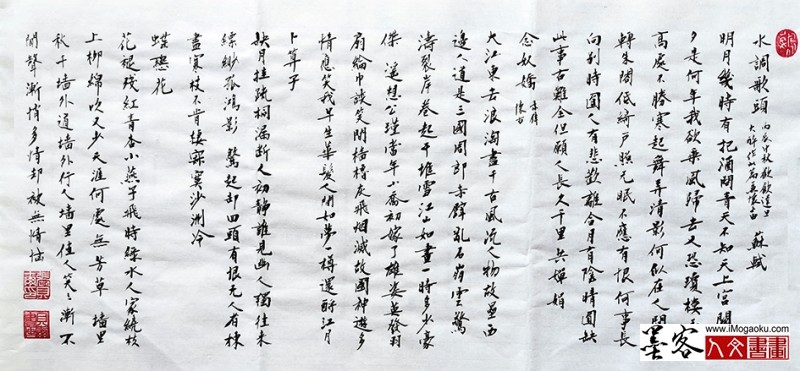 水調歌頭 丙辰中秋歡飲達旦 大醉作此篇兼懷子由 蘇軾
明月幾時有把酒問青天不知天上宮闕
夕是何年我欲乘風歸去又恐瓊樓
高處不勝寒起舞弄清影何似在人間
轉朱閣低綺戶照无眠不應有恨何事長
向別時圓人有悲歡離合月有陰晴圓缺
此事古難全但願人長久千里共嬋娟
念奴嬌 赤壁懷古
大江東去浪淘盡千古風流人物故壘西
邊人道是三國周郎赤壁亂石崩雲驚
濤裂岸卷起千堆雪江山如畫一時多少豪
傑遙想公瑾當年小喬初嫁了雄姿英發羽
扇綸巾談笑間檣櫓灰飛烟滅故國神遊多
情應笑我早生華髮人間如夢一樽還酹江月
卜算子
缺月挂疏桐漏斷人初靜誰見幽人獨往來
縹緲孤鴻影 驚起却回頭有恨无人省揀
盡寒枝不肯棲寂寞沙洲冷
蝶戀花
花褪殘紅青杏小燕子飛時綠水人家繞枝
上柳綿吹又少天涯何處無芳草 墙里
秋千墙外道墙外行人墙里佳人笑々漸不
聞聲漸悄多情却被無情惱
www.iMogaoku.com
墨客人文書畫